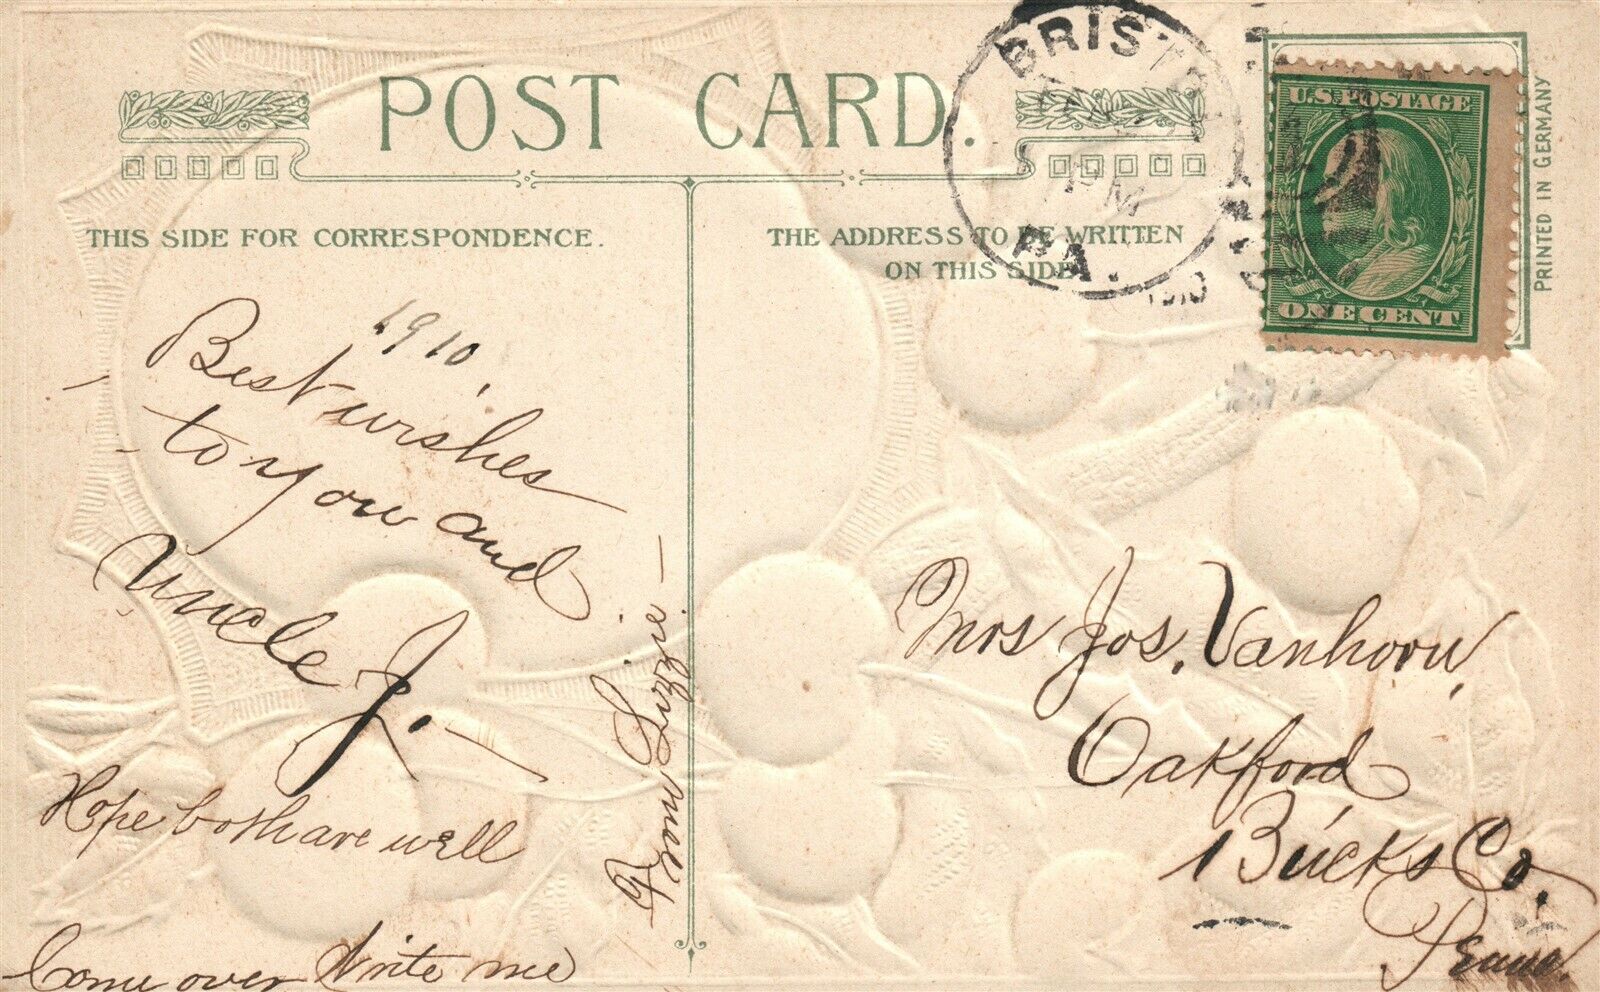 POST CARD.
THIS SIDE FOR CORRESPONDENCE.
THE ADDRESS TO BE WRITTEN
ON THIS SIDE.
BRISTOL
PM
PA.
1910
U.S. POSTAGE
ONE CENT
PRINTED IN GERMANY
1910,
Best wishes
to you and
Uncle J.
Hope both are well
Come over Write me
From Lizzie
Mrs Jos. Vanhorn,
Oakford
Bucks Co.
Penna.